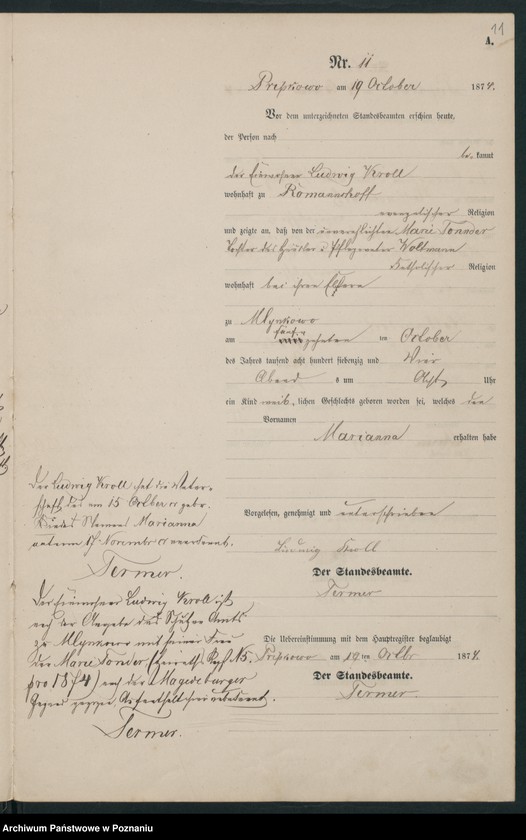 11
A.
Nr. 11
am 19 October 1874.
Vor dem unterzeichneten Standesbeamten erschien heute,
der Person nach
be kannt
der Einwohner Ludwig Kroll
wohnhaft zu Romanshoff
evangelischer Religion
und zeigte an, daß von der unverehelichten Marie Tonnder
Tochter des Häusler Pflegevater Woltmann
katholischer Religion
wohnhaft bei ihren Eltern
zu Mlynkowo
am fünfzehnten ten October
des Jahres tausend acht hundert siebenzig und vier
Abends um Acht Uhr
ein Kind weib lichen Geschlechts geboren worden sei, welches den
Vornamen
Marianna erhalten habe
Vorgelesen, genehmigt und unterschrieben
Ludwig Kroll
Der Standesbeamte.
Termer
Die Uebereinstimmung mit dem Hauptregister beglaubigt
am 19 ten Octbr 1874.
Der Standesbeamte.
Termer.
Der Ludwig Kroll hat die Vater-
schaft des am 15 October cr gebr.
Kindes Namens Marianna
unterm 17 November cr anerkannt.
Termer.
Der Einwohner Ludwig Kroll ist
nach der Angabe des Schulzen Amts
zu Mlynkowo mit seiner Frau
der Marie Tonder (Heirath Nr 5.
pro 1874) nach der Magdeburger
Gegend gezogen, Aufenthalt unbekannt.
Termer.
Archiwum Państwowe w Poznaniu